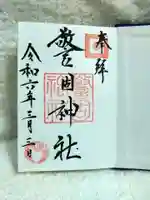 奉拝
警固神社
令和六年三月三日